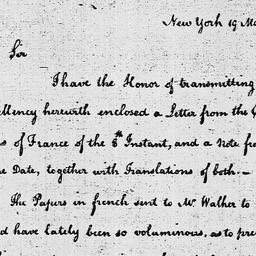 New York 19 Ma
Sir
I have the Honor of transmitting
ellency herewith enclosed a Letter from the
s of France of the 8th Instant, and a Note fro
e Date, together with Translations of both.—
The Papers in french sent to Mr. Walker to
d have lately been so voluminous, as to pre